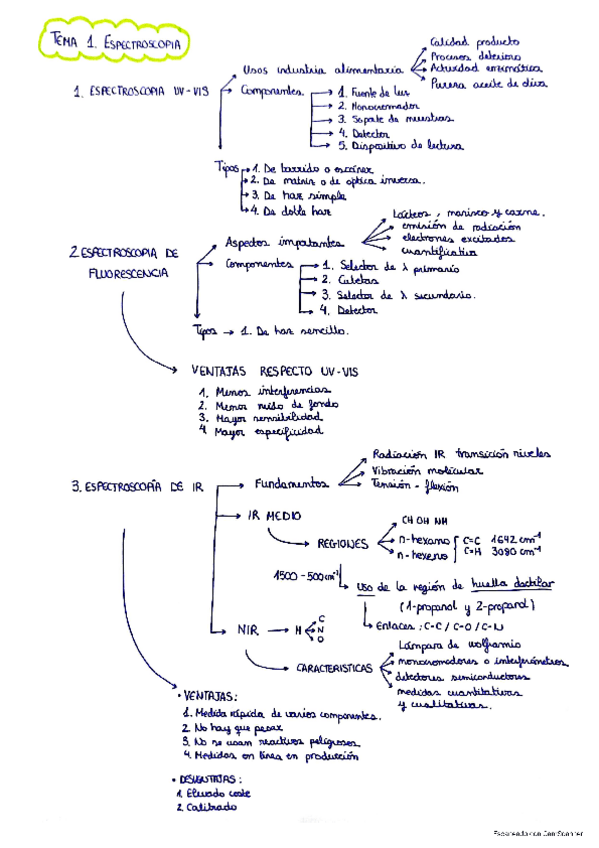 TEMA 1. ESPECTROSCOPIA
1. ESPECTROSCOPIA UV-VIS
Usos industria alimentaria
Calidad producto
Procesos deterioro
Actividad enzimática
Pureza aceite de oliva
Componentes
1. Fuente de luz
2. Monocromador
3. Soporte de muestras
4. Detector
5. Dispositivo de lectura
Tipos
1. De barrido o escáner
2. De matriz o de optica inversa.
3. De haz simple
4. De doble haz
2. ESPECTROSCOPIA DE FLUORESCENCIA
Aspectos importantes
Lácteos, marisco y carne.
emisión de radiación
electrones excitados
cuantificativa
Componentes
1. Selector de λ primario
2. Cubetas
3. Selector de λ secundario.
4. Detector
Tipos → 1. De haz sencillo.
VENTAJAS RESPECTO UV-VIS
1. Menos interferencias
2. Menor ruido de fondo
3. Mayor sensibilidad
4. Mayor especificidad
3. ESPECTROSCOPÍA DE IR
Fundamentos
Radiación IR transición niveles
Vibración molecular
Tensión - flexión
IR MEDIO
REGIONES
CH OH NH
n-hexano
n-hexeno
C=C 1642 cm⁻¹
C=H 3080 cm⁻¹
1500-500 cm⁻¹
Uso de la región de huella dactilar
(1-propanol y 2-propanol)
Enlaces: C-C / C-O / C-N
NIR → H
C
N
O
CARACTERISTICAS
Lámpara de wolframio
monocromadores o interferómetros
detectores semiconductores
medidas cuantitativas
y cualitativas.
• VENTAJAS:
1. Medida rápida de varios componentes.
2. No hay que pesar
3. No se usan reactivos peligrosos
4. Medidas on line en producción
• DESVENTAJAS:
1. Elevado coste
2. Calibrado